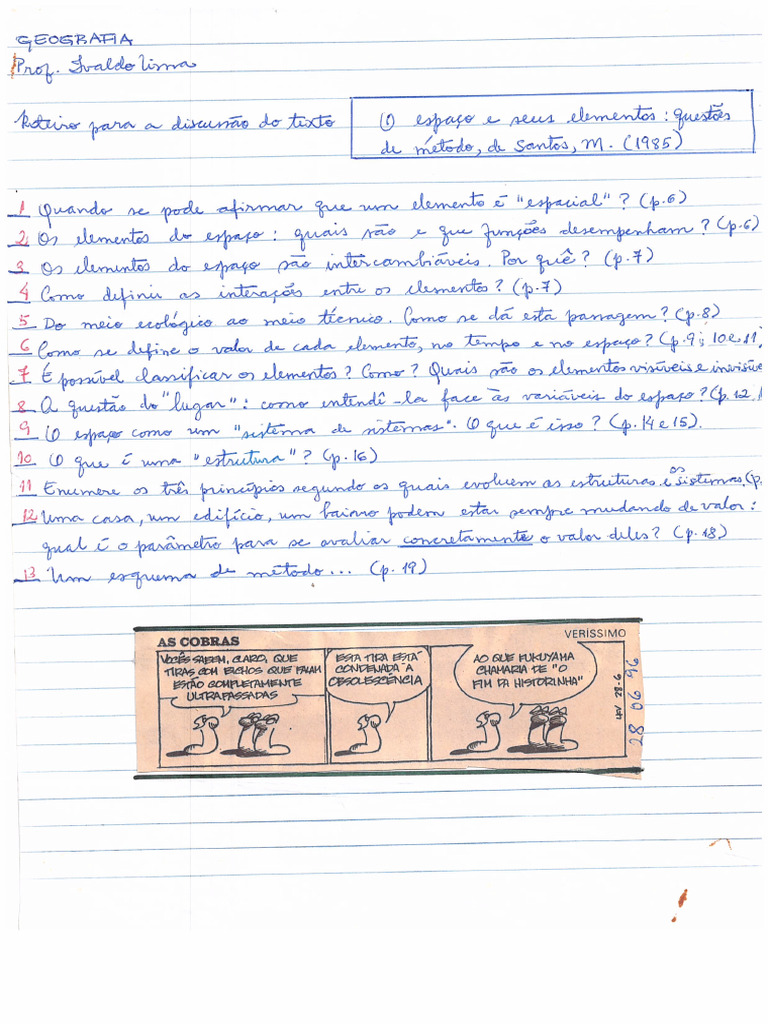 GEOGRAFIA
Prof. Ivaldo Lima
Roteiro para a discussão do texto
O espaço e seus elementos: questões
de método, de Santos, M. (1985)
1 Quando se pode afirmar que um elemento é "espacial"? (p.6)
2 Os elementos do espaço: quais são e que funções desempenham? (p.6)
3 Os elementos do espaço são intercambiáveis. Por quê? (p.7)
4 Como definir as interações entre os elementos? (p.7)
5 Do meio ecológico ao meio técnico. Como se dá esta passagem? (p.8)
6 Como se define o valor de cada elemento, no tempo e no espaço? (p.9; 10 e 11)
7 É possível classificar os elementos? Como? Quais são os elementos visíveis e invisíve
8 A questão do "lugar": como entendê-la face às variáveis do espaço? (p.12,
9 O espaço como um "sistema de sistemas". O que é isso? (p.14 e 15).
10 O que é uma "estrutura"? (p.16)
11 Enumere os três princípios segundo os quais evoluem as estruturas e os sistemas. (p.
12 Uma casa, um edifício, um bairro podem estar sempre mudando de valor:
qual é o parâmetro para se avaliar concretamente o valor deles? (p.18)
13 Um esquema de método... (p.19)
AS COBRAS
VERÍSSIMO
VOCÊS SABEM, CLARO, QUE
TIRAS COM BICHOS QUE FALAM
ESTÃO COMPLETAMENTE
ULTRAPASSADAS
ESTA TIRA ESTÁ
CONDENADA À
OBSOLESCÊNCIA
AO QUE FUKUYAMA
CHAMARIA DE "O
FIM DA HISTORINHA"
28-6
28 06 96